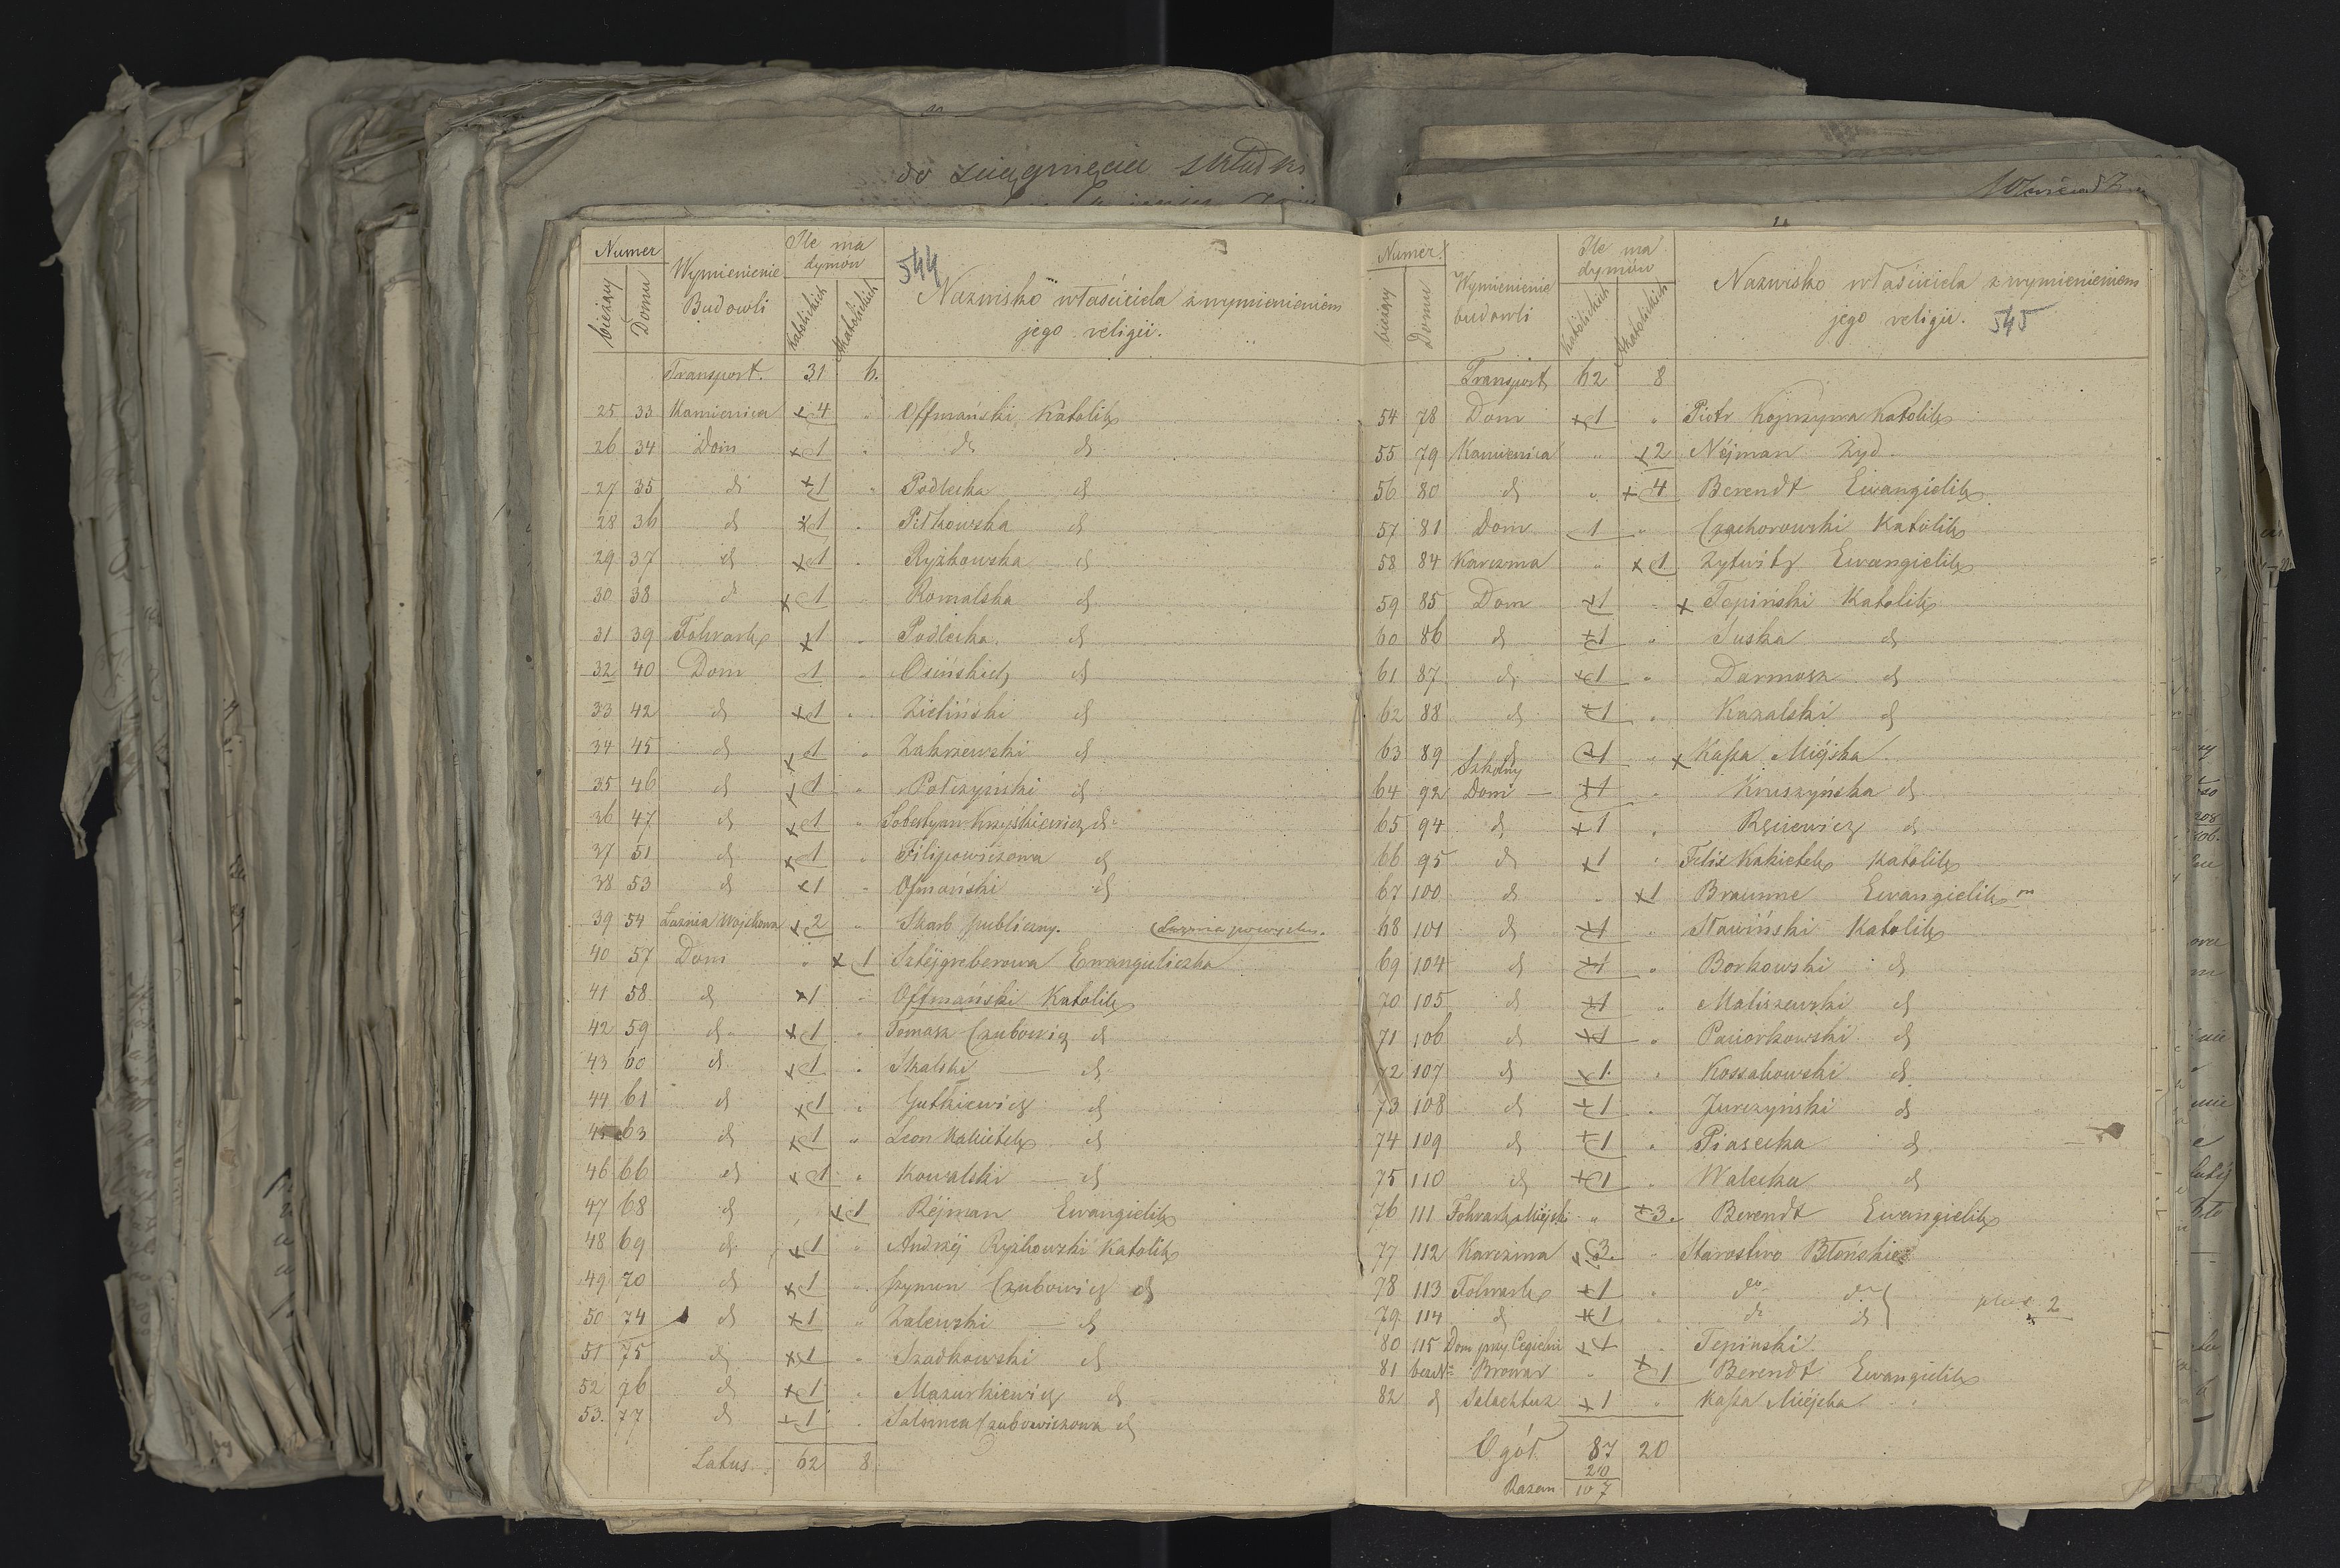 do zaciągnięcia składki
Numer
bieżący
Domu
Wymienienie
Budowli
Ile ma
dymów
Katolickich
Akatolickich
544
Nazwisko właściciela z wymienieniem
jego religii.
Transport. 31 6.
25 33 Kamienica x 4 " Offmański Katolik
26 34 Dom x 1 " do do
27 35 do x 1 " Podlecka do
28 36 do x 1 " Pitkowska do
29 37 do x 1 " Ryżkowska do
30 38 do x 1 " Romalska do
31 39 Folwark x 1 " Podlecka. do
32 40 Dom 1 " Osińskich do
33 42 do x 1 " Zieliński do
34 45 do x 1 " Zakrzewski do
35 46 do x 1 " Potczyński do
36 47 do x 1 " Sobestyan do
37 51 do x 1 " Filipowiczowa do
38 53 do x 1 " Ofmański do
39 54 Łaźnia Wojskowa x 2 " Skarb publiczny.
40 57 Dom " x 1 Sztejgreberowa Ewangieliczka
41 58 do x 1 " Offmański Katolik
42 59 do x 1 " Tomasz Czubowicz do
43 60 do x 1 " Skalski — do
44 61 do x 1 " Gutkiewicz do
45 63 do x 1 " Leon Kakietek do
46 66 do x 1 " Kowalski — do
47 68 do " x 1 Réjman Ewangielik
48 69 do x 1 " Andrzéj Ryżkowski Katolik
49 70 do x 1 " Szymon Czubowicz do
50 74 do x 1 " Zalewski — do
51 75 do x 1 " Szadkowski do
52 76 do x 1 " Mazurkiewicz do
53. 77 do x 1 " Salomea Czubowiczowa do
Latus 62 8.
Numer
bieżący
Domu
Wymienienie
budowli
Ile ma
dymów
Katolickich
Akatolickich
Nazwisko właściciela z wymienieniem
jego religii. 545
Transport 62 8
54 78 Dom x 1 " Piotr Katolik
55 79 Kamienica " x 2 Néjman Żyd.
56 80 do " x 4 Berendt Ewangielik
57 81 Dom 1 " Czachorowski Katolik
58 84 Karczma " x 1 Zytwitz Ewangielik
59 85 Dom x 1 " x Tepiński Katolik
60 86 do x 1 " Suska do
61 87 do x 1 " Darmosz do
62 88 do x 1 " Kazalski do
63 89 do x 1 " x Kassa Miéjska
64 92 Szkolny Dom — x 1 " Kruszyńska do
65 94 do x 1 " do
66 95 do x 1 " Felix Kakietek Katolik
67 100 do " x 1 Braunne Ewangielik
68 101 do x 1 " Sławiński Katolik
69 104 do x 1 " Borkowski do
70 105 do x 1 " Maliszewski do
71 106 do x 1 " Paciorkowski do
72 107 do x 1 " Kossakowski do
73 108 do x 1 " Jurczyński do
74 109 do x 1 " Piasecka do
75 110 do x 1 " Walecka do
76 111 Folwark Miéjski " x 3. Berendt Ewangielik
77 112 Karczma x 3. " Starostwo Błońskie
78 113 Folwark x 1 " do do
79 114 do x 1 do do plus 2
80 115 Dom przy Cegielni x 1 Tepiński
81 bez No Browar " x 1 Berendt Ewangielik
82 do Szlachtuz x 1 " Kassa Miéjska
Ogół 87 20
20
Razem 107